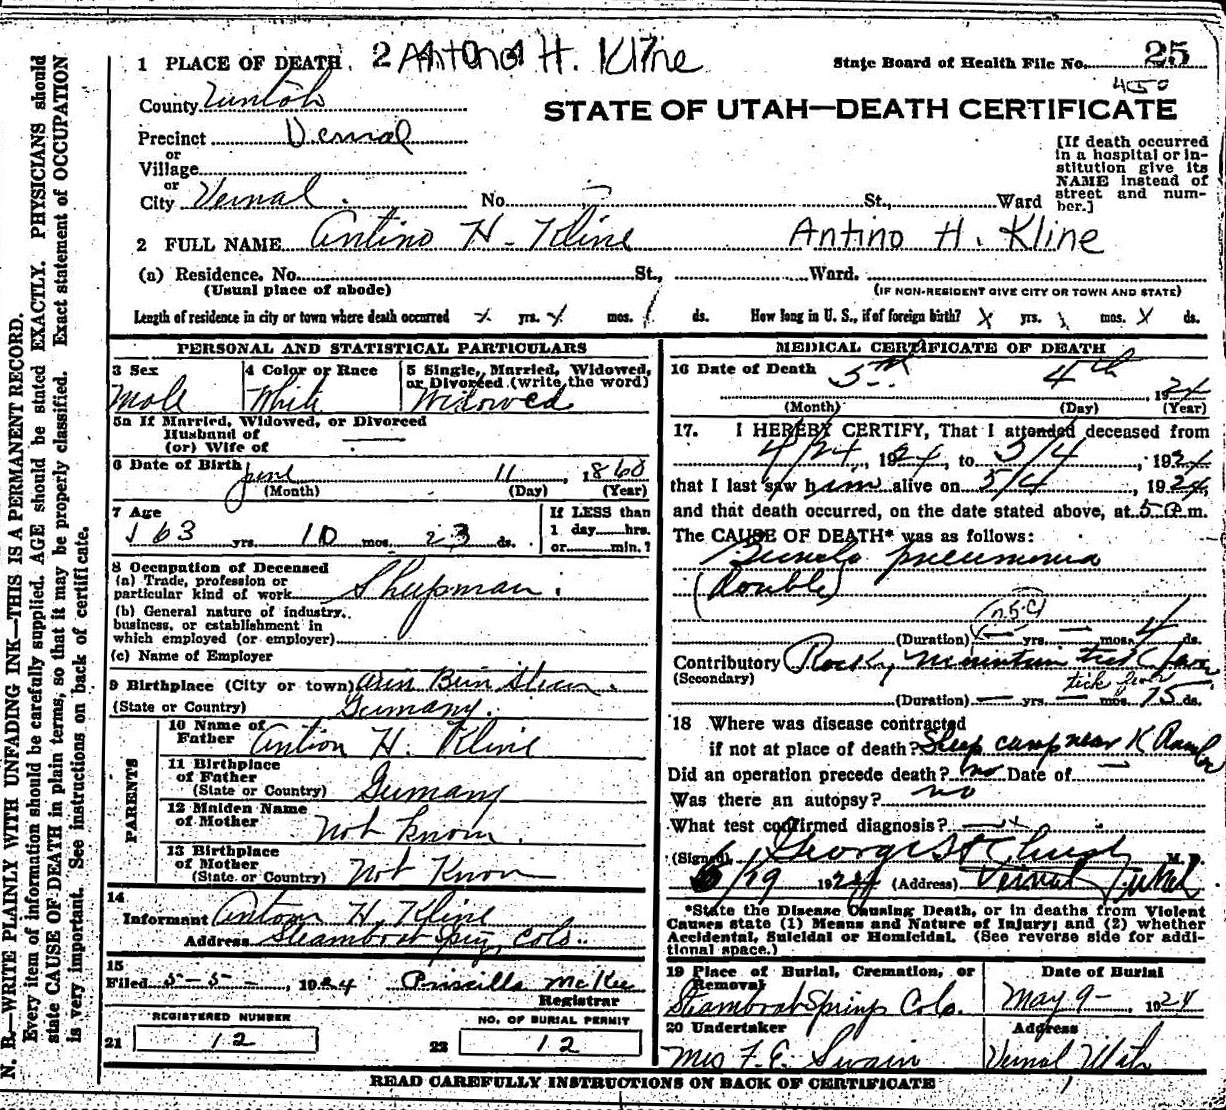 1 PLACE OF DEATH. 2 Antono H. Kline
State Board of Health File No. 25
450
County Uintah
STATE OF UTAH—DEATH CERTIFICATE
Precinct Vernal
or
Village
or
City Vernal. No. St., Ward
[If death occurred
in a hospital or in-
stitution give its
NAME instead of
street and num-
ber.]
2 FULL NAME Antino H. Kline Antino H. Kline
(a) Residence. No. St., Ward.
(Usual place of abode) (IF NON-RESIDENT GIVE CITY OR TOWN AND STATE)
Length of residence in city or town where death occurred x yrs. x mos. 1 ds. How long in U. S., if of foreign birth? x yrs. x mos. x ds.
PERSONAL AND STATISTICAL PARTICULARS
3 Sex
Male
4 Color or Race
White
5 Single, Married, Widowed,
or Divorced (write the word)
Widowed
5a If Married, Widowed, or Divorced
Husband of
(or) Wife of
6 Date of Birth June 11, 1860
(Month) (Day) (Year)
7 Age
63 yrs. 10 mos. 23 ds.
If LESS than
1 day hrs.
or min.?
8 Occupation of Deceased
(a) Trade, profession or
particular kind of work Sheepman.
(b) General nature of industry,
business, or establishment in
which employed (or employer)
(c) Name of Employer
9 Birthplace (City or town)
(State or Country) Germany.
PARENTS
10 Name of
Father Antion H. Kline
11 Birthplace
of Father
(State or Country) Germany
12 Maiden Name
of Mother Not Known.
13 Birthplace
of Mother
(State or Country) Not Known
14
Informant Anton H. Kline
Address Steamboat Spgs, Colo.
15
Filed 5-5-, 1924 Priscilla McKee
Registrar
REGISTERED NUMBER
21 12
NO. OF BURIAL PERMIT
22 12
MEDICAL CERTIFICATE OF DEATH
16 Date of Death 5th 4th, 1924
(Month) (Day) (Year)
17. I HEREBY CERTIFY, That I attended deceased from
4/24, 1924, to 5/4, 1924
that I last saw him alive on 5/4, 1924,
and that death occurred, on the date stated above, at 5 a.m.
The CAUSE OF DEATH* was as follows:
Broncho pneumonia
(double)
(Duration) — yrs. — mos. 4 ds.
Contributory Rocky Mountain tick fever
(Secondary) tick fever
(Duration) — yrs. — mos. 15 ds.
18 Where was disease contracted
if not at place of death? Sheep camp near K Ranch
Did an operation precede death? no Date of —
Was there an autopsy? no
What test confirmed diagnosis? — x
(Signed) George, M. D.
5/29 1924 (Address) Vernal Utah
*State the Disease Causing Death, or in deaths from Violent
Causes state (1) Means and Nature of Injury; and (2) whether
Accidental, Suicidal or Homicidal. (See reverse side for addi-
tional space.)
19 Place of Burial, Cremation, or
Removal
Steamboat Springs Colo.
Date of Burial
May 9-, 1924
20 Undertaker
Mrs F. E. Swain
Address
Vernal Utah
READ CAREFULLY INSTRUCTIONS ON BACK OF CERTIFICATE
N. B.—WRITE PLAINLY WITH UNFADING INK—THIS IS A PERMANENT RECORD.
Every item of information should be carefully supplied. AGE should be stated EXACTLY. PHYSICIANS should
state CAUSE OF DEATH in plain terms, so that it may be properly classified. Exact statement of OCCUPATION
is very important. See instructions on back of certificate.